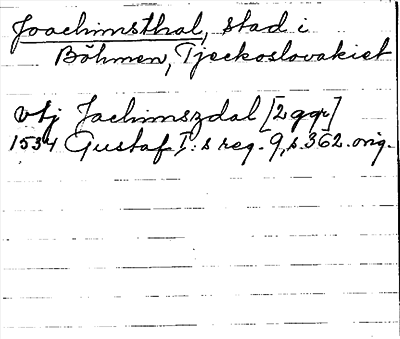 Joachimsthal, stad i
Böhmen, Tjeckoslovakiet
vtj Jachimszdal [2 ggr]
1534 Gustaf I:s reg. 9, s. 362. orig.